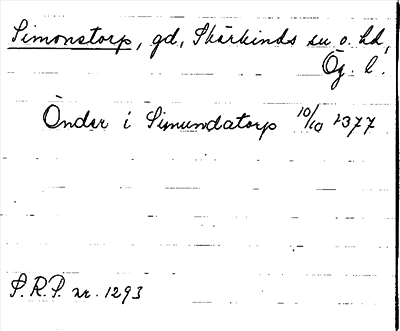 Simonstorp, gd, Skärkinds sn o. hd,
Ög. l.
Önder i Simundatorp 10/10 1377
S.R.P. nr. 1293